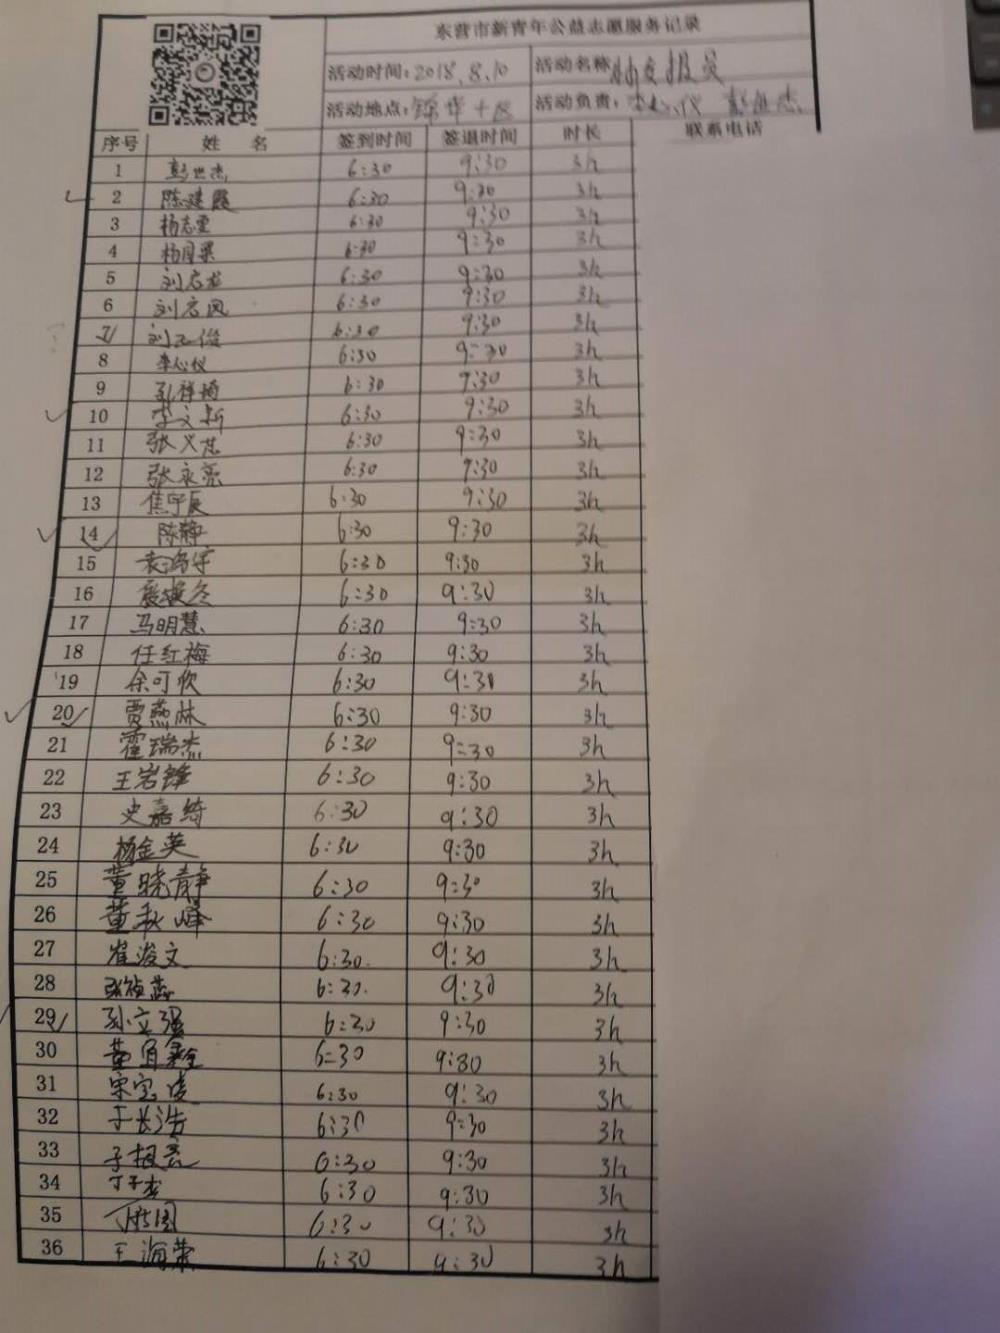 东营市新青年公益志愿服务记录
活动时间:2018.8.10 活动名称
活动地点:锦华十区 活动负责:李心仪 彭世杰
序号 姓名 签到时间 签退时间 时长 联系电话
1 彭世杰 6:30 9:30 3h
2 陈建霞 6:30 9:30 3h
3 杨志雯 6:30 9:30 3h
4 6:30 9:30 3h
5 刘启龙 6:30 9:30 3h
6 刘启凤 6:30 9:30 3h
7 6:30 9:30 3h
8 李心仪 6:30 9:30 3h
9 6:30 9:30 3h
10 李文新 6:30 9:30 3h
11 6:30 9:30 3h
12 张永亮 6:30 9:30 3h
13 焦宇辰 6:30 9:30 3h
14 陈静 6:30 9:30 3h
15 6:30 9:30 3h
16 6:30 9:30 3h
17 马明慧 6:30 9:30 3h
18 任红梅 6:30 9:30 3h
19 余可欣 6:30 9:30 3h
20 贾燕林 6:30 9:30 3h
21 霍瑞杰 6:30 9:30 3h
22 王岩锋 6:30 9:30 3h
23 史嘉绮 6:30 9:30 3h
24 杨金英 6:30 9:30 3h
25 董晓静 6:30 9:30 3h
26 董秋峰 6:30 9:30 3h
27 崔浚文 6:30 9:30 3h
28 6:30 9:30 3h
29 孙文强 6:30 9:30 3h
30 6:30 9:30 3h
31 宋宝凌 6:30 9:30 3h
32 于长浩 6:30 9:30 3h
33 6:30 9:30 3h
34 6:30 9:30 3h
35 6:30 9:30 3h
36 王海荣 6:30 9:30 3h